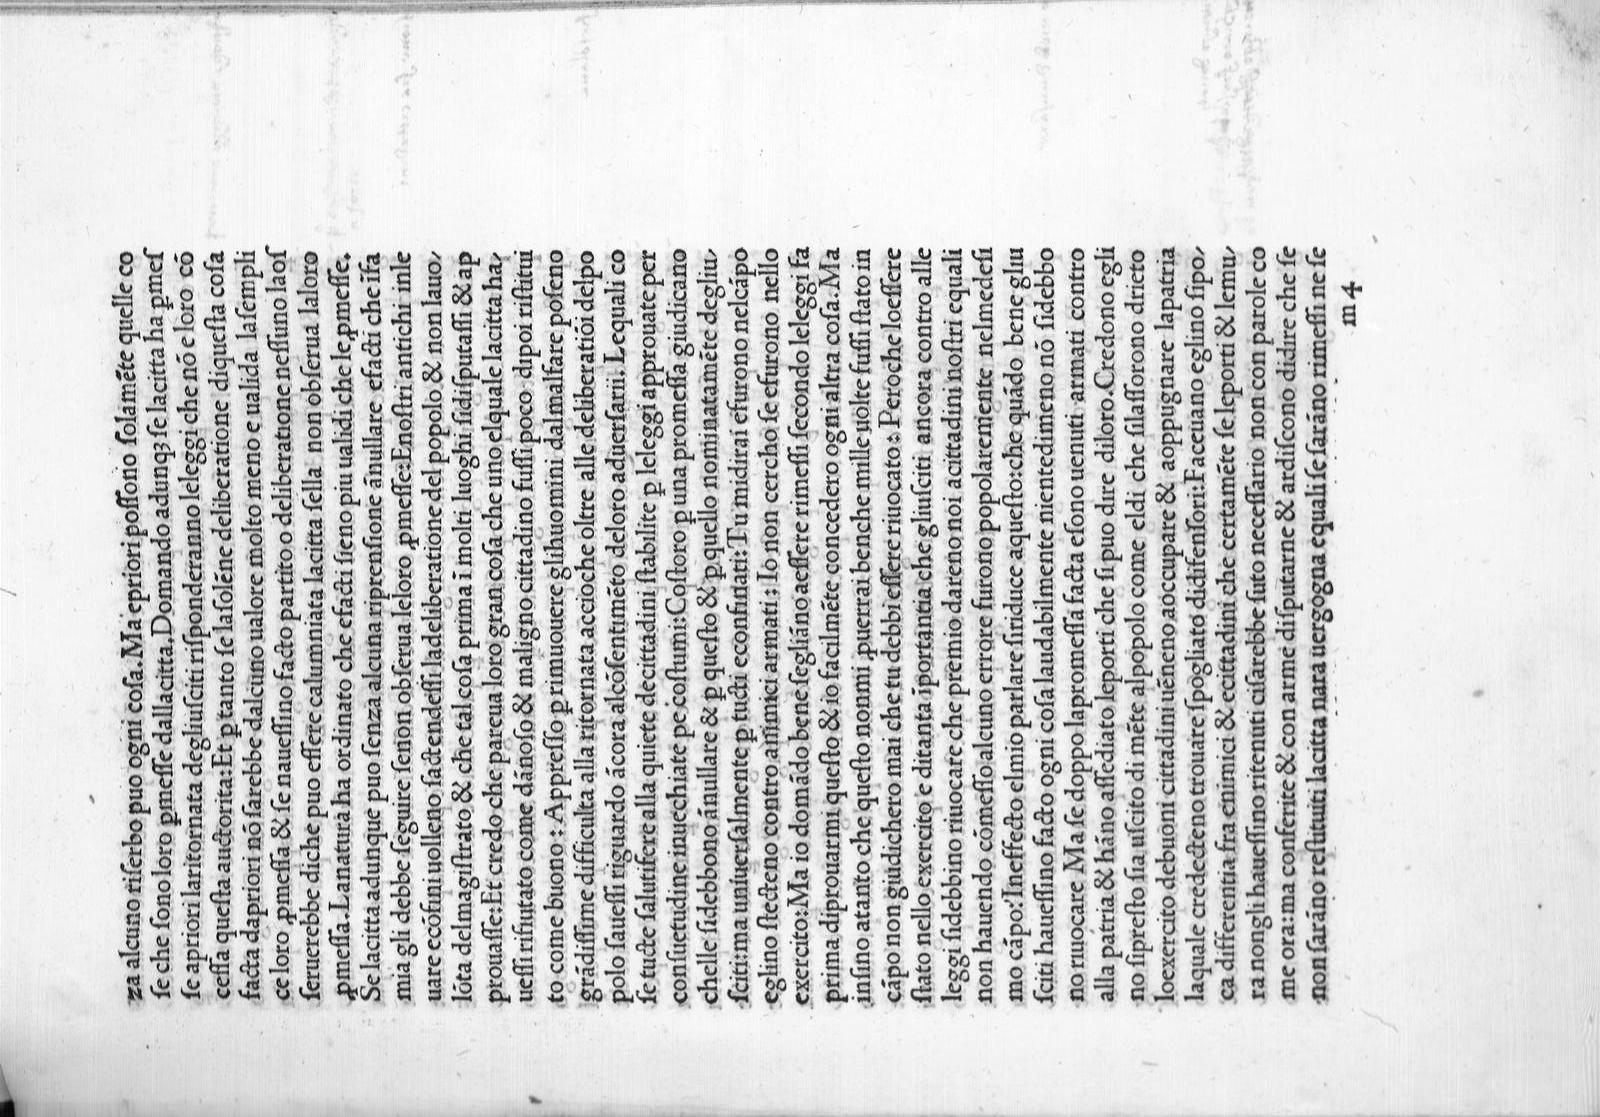 za alcuno riſerbo puo ogni coſa. Ma epriori poſſono ſolamẽte quelle co
ſe che ſono loro ꝓmeſſe dallacitta. Domando adunqꝫ ſe lacitta ha ꝓmeſ
ſe apriori laritornata degliuſciti riſponderanno leleggi che nõ e loro cõ
ceſſa queſta auctorita: Et ꝑ tanto ſe laſolẽne deliberatione diqueſta coſa
facta dapriori nõ ſarebbe dalcuno ualore molto meno e ualida laſempli
ce loro ꝓmeſſa & ſe naueſſino facto partito o deliberatione neſſuno laoſ
ſeruerebbe diche puo eſſere calumniata lacitta ſella non obſerua laloro
ꝓmeſſa. Lanatura ha ordinato che efacti ſieno piu ualidi che le ꝓmeſſe.
Se lacitta adunque puo ſenza alcuna riprenſione ãnullare efacti che iſa
ma gli debbe ſeguire ſenon obſerua leloro ꝓmeſſe: Enoſtri antichi inle
uare ecõfini uolleno ſactendeſſi ladeliberatione del popolo & non lauo/
lõta delmagiſtrato & che tal coſa prima ĩ molti luoghi ſidiſputaſſi & ap
prouaſſe: Et credo che pareua loro gran coſa che uno elquale lacitta ha/
ueſſi rifiutato come dãnoſo & maligno cittadino fuſſi poco dipoi riſtitui
to come buono: Appreſſo ꝑ rimuouere glihuomini dalmalfare poſeno
grãdiſſime difficulta alla ritornata accioche oltre alle deliberatiõi delpo
polo ſaueſſi riguardo ãcora alcõſentimẽto deloro aduerſarii. Lequali co
ſe tucte ſalutifere alla quiete decittadini ſtabilite ꝑ leleggi approuate per
conſuetudine inuechiate pe coſtumi: Coſtoro ꝑ una promeſſa giudicano
chelle ſidebbono ãnullare & ꝑ queſto & ꝑ quello nominatamẽte degliu/
ſciti: ma uniuerſalmente ꝑ tucti econfinati: Tu midirai efurono nelcãpo
eglino ſtecteno contro anĩmici armati: Io non cercho ſe efurono nello
exercito: Ma io domãdo bene ſegliãno aeſſere rimeſſi ſecondo leleggi fa
prima diprouarmi queſto & io facilmẽte concedero ogni altra coſa. Ma
inſino atanto che queſto nonmi ꝓuerrai benche mille uolte fuſſi ſtato in
cãpo non giudichero mai che tu debbi eſſere riuocato: Peroche loeſſere
ſtato nello exercito e ditanta ĩportantia che gliuſciti ancora contro alle
leggi ſidebbino riuocare che premio dareno noi acittadini noſtri equali
non hauendo cõmeſſo alcuno errore furono popolaremente nelmedeſi
mo cãpo: Ineffecto elmio parlare ſiriduce aqueſto: che quãdo bene gliu
ſciti haueſſino facto ogni coſa laudabilmente nientedimeno nõ ſidebbo
no riuocare Ma ſe doppo lapromeſſa facta eſono uenuti armati contro
alla patria & hãno aſſediato leporti che ſi puo dire diloro. Credono egli
no ſipreſto ſia uſcito di mẽte alpopolo come eldi che ſilaſſorono drieto
loexercito debuoni cittadini uẽneno aoccupare & aoppugnare lapatria
laquale credecteno trouare ſpogliato didifenſori: Faceuano eglino ſipo/
ca differentia fra enimici & ecittadini che certamẽte ſe leporti & lemu/
ra nongli haueſſino ritenuti ciſarebbe ſuto neceſſario non con parole co
me ora: ma conferite & con arme diſputarne & ardiſcono didire che ſe
non ſarãno reſtituti lacitta nara uergogna equali ſe ſarãno rimeſſi ne ſe
m 4